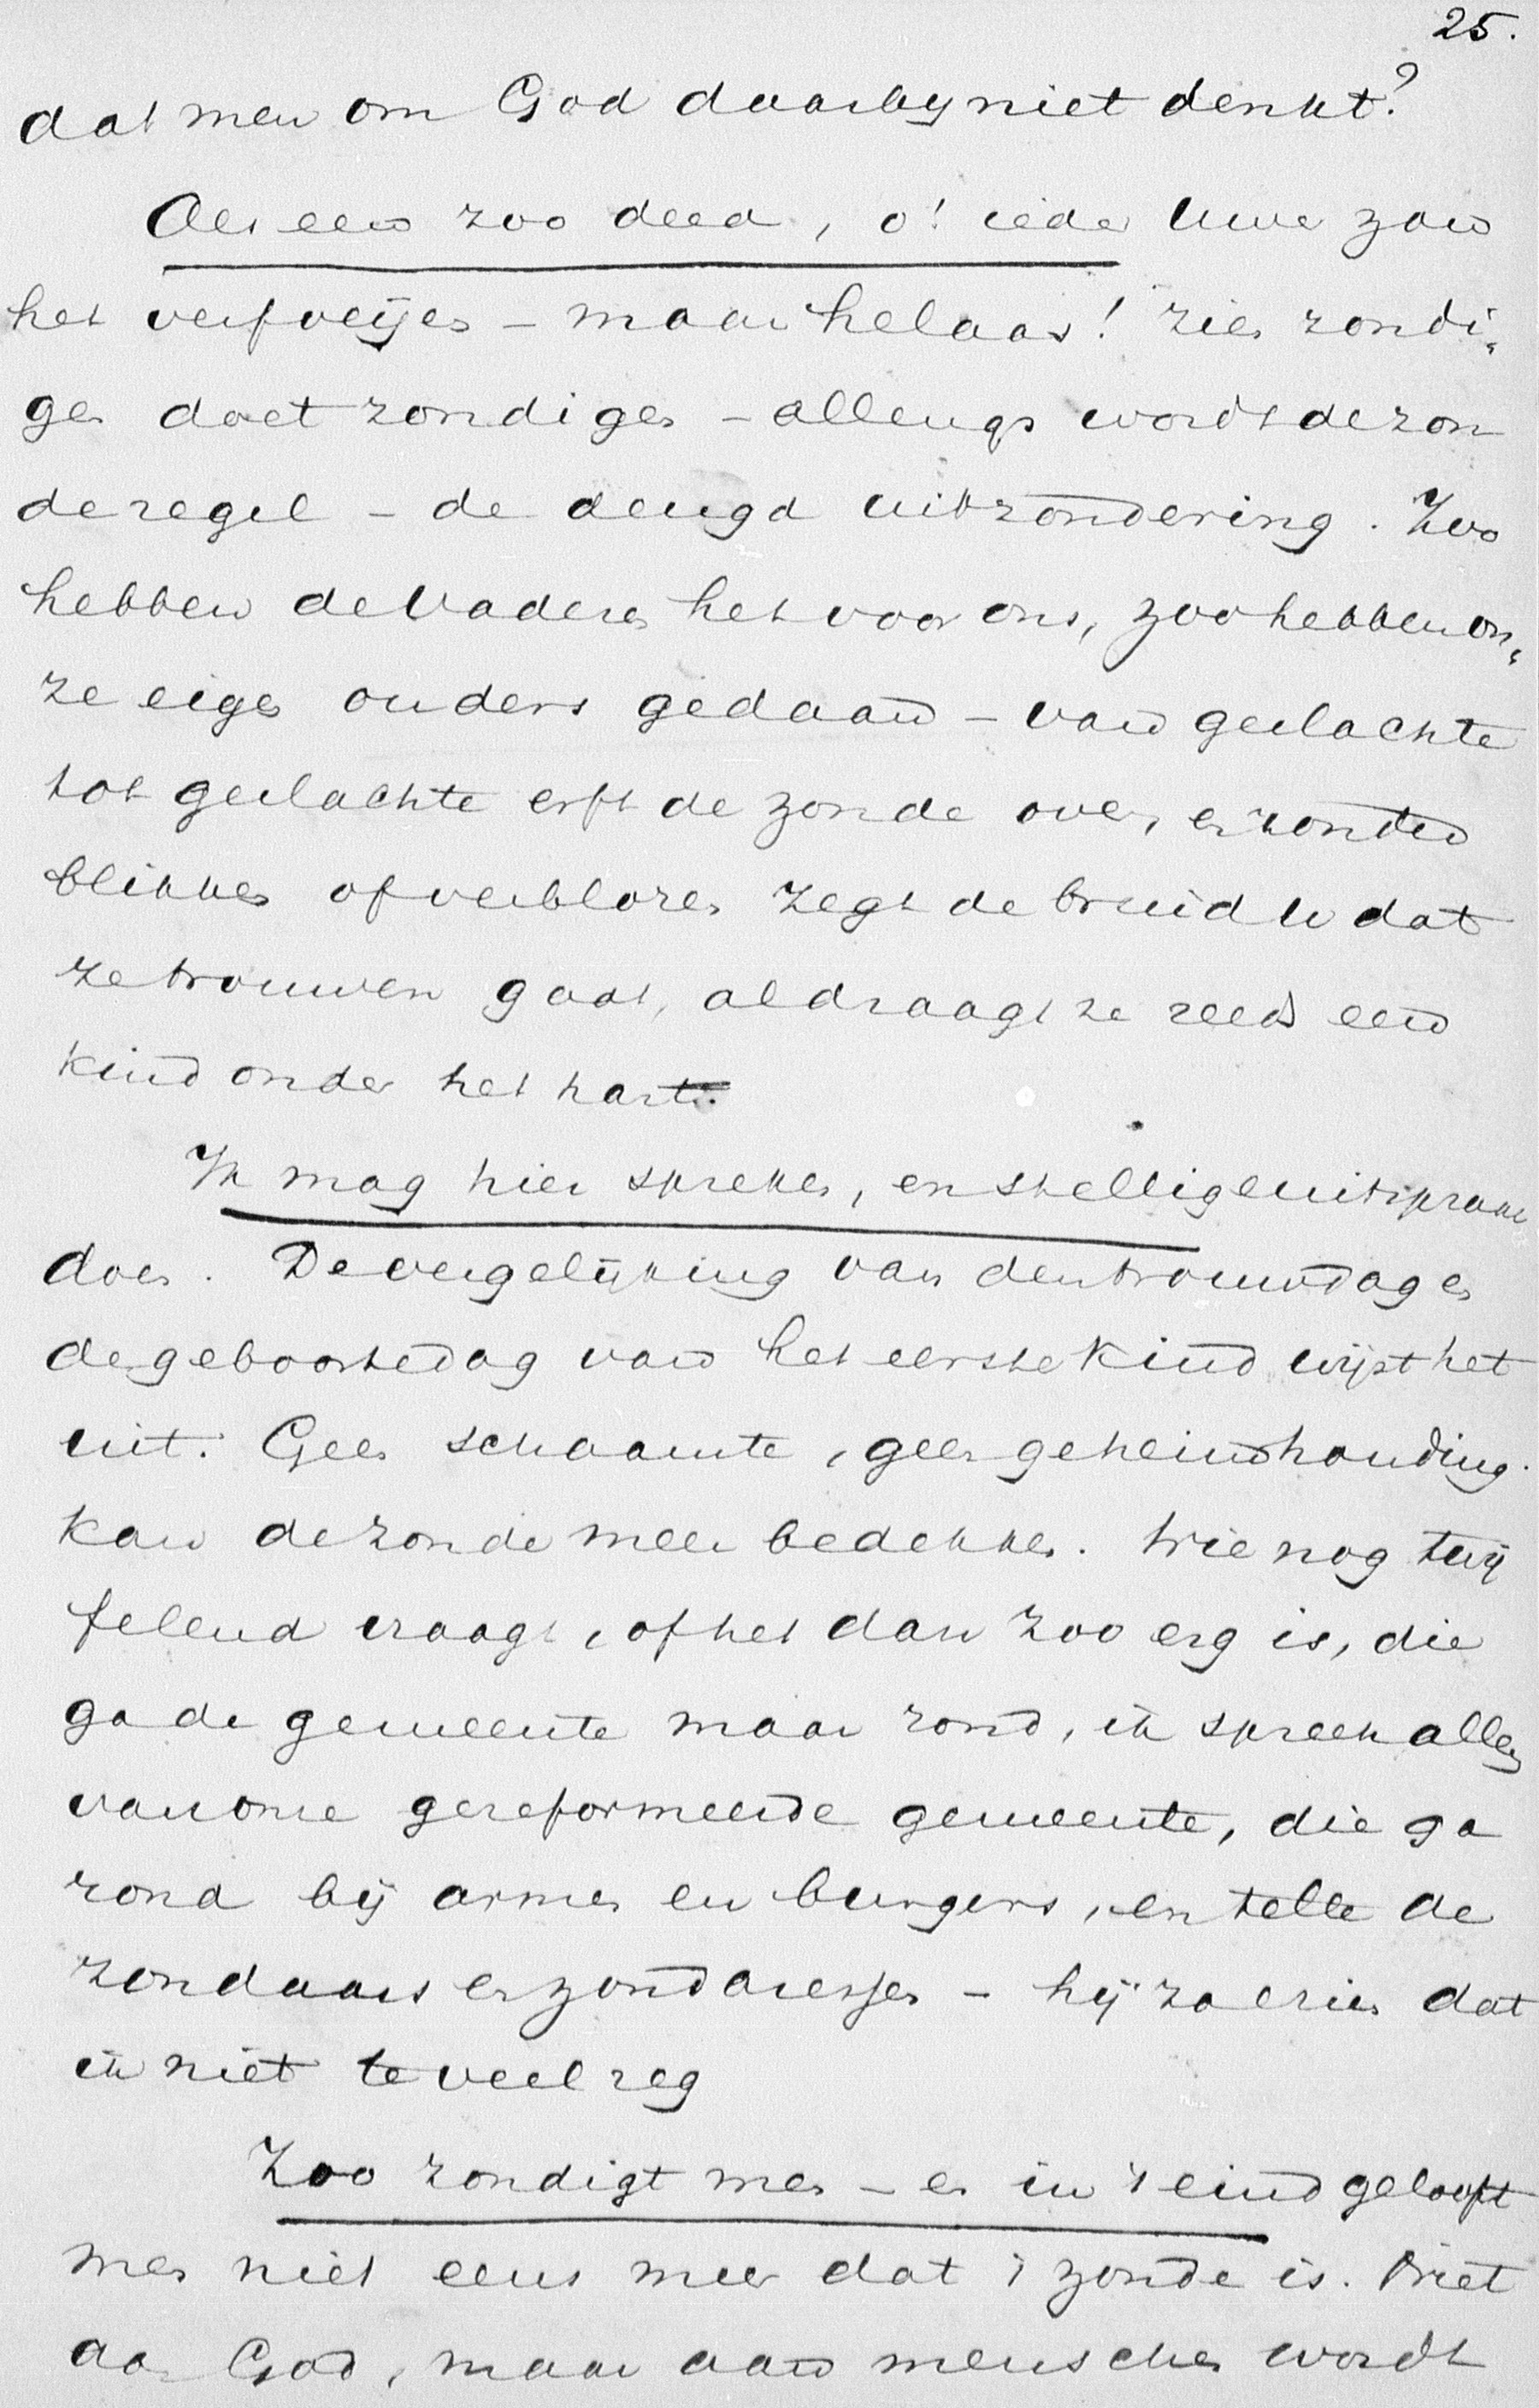 25.
dat men om God daarby niet denkt?
Als een zoo deed, o! ieder Uwer zou
het verfoeijen – maar helaas! zien zondi„
gen doet zondigen – allengs wordt de zon
de regel – de deugd uitzondering. Zoo
hebben de Vaderen het voor ons, zoo hebben on„
ze eigen ouders gedaan – van geslachte
tot geslachte erft de zonde over, en zonder
blikken of verblozen zegt de bruid U dat
ze trouwen gaat, al draagt ze reeds een
kind onder het hart.
Ik mag hier spreken, en stellige uitspraak
doen. De vergelijking van den trouwdag en
de geboortedag van het eerste kind wijst het
uit. Geen schaamte, geen geheimhouding
kan de zonde meer bedekken. Wie nog twij
felend vraagt, of het dan zoo erg is, die
ga de gemeente maar rond, ik spreek alleen
van onze gereformeerde gemeente, die ga
rond bij armen en burgers, en telle de
zondaars en zondaressen – hij zal zien dat
ik niet te veel zeg
Zoo zondigt men – en in 't eind gelooft
men niet eens meer dat 't zonde is. Niet
aan God, maar aan menschen wordt